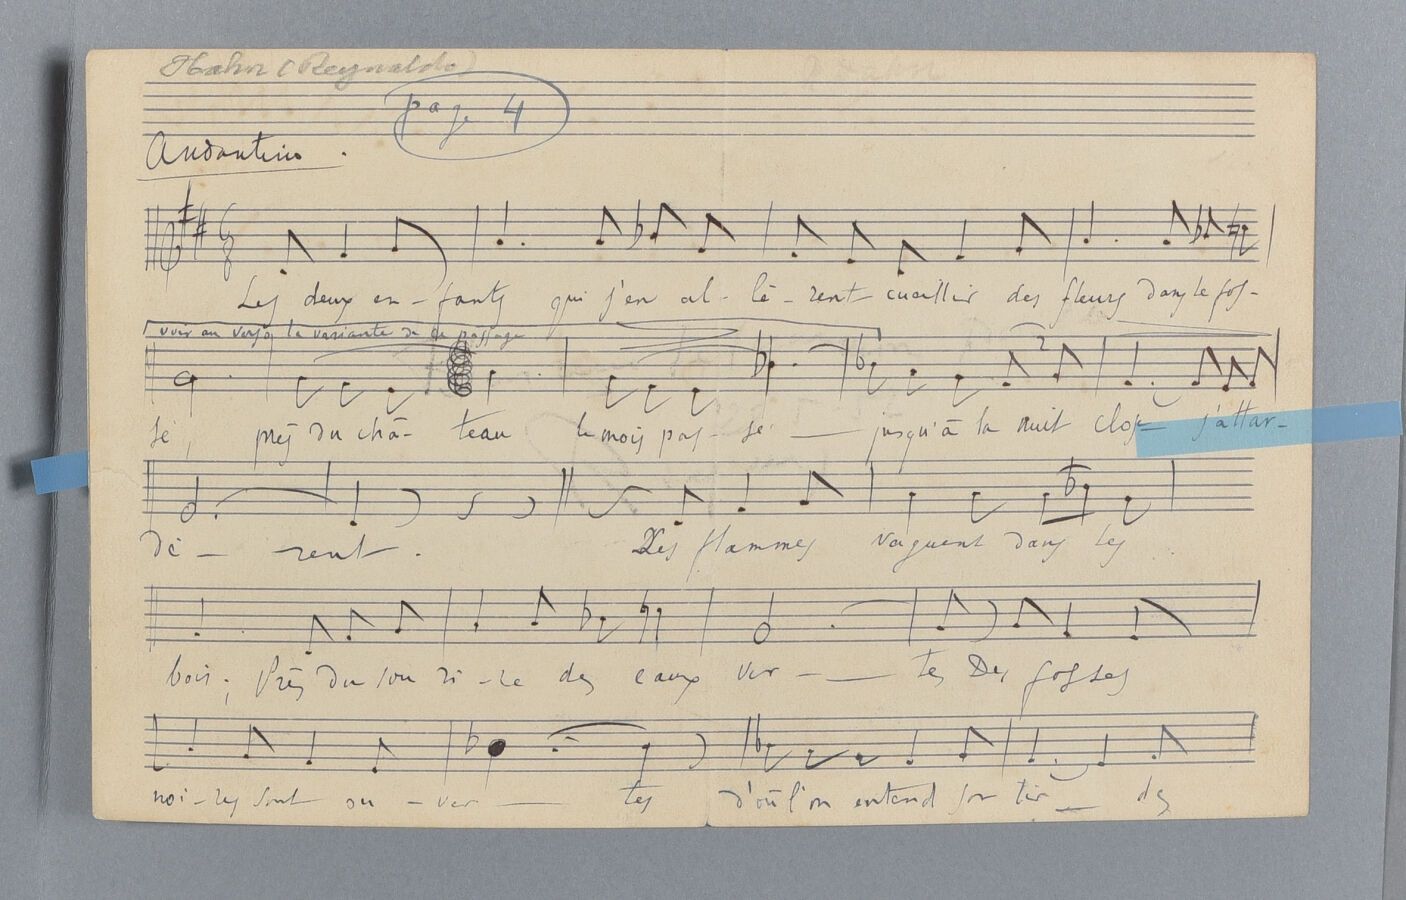 Hahn (Reynaldo)
page 4
Andantino.
Les deux en-fants qui s'en al-lè-rent cueillir des fleurs dans le fos-
voir au verso la variante de ce passage
sé, près du châ-teau le mois pas-sé — jusqu'à la nuit close s'attar-
dè-rent. Les flammes vaguent dans les
bois; Près du sou ri-re des eaux ver-—tes Des fosses
noi-res sont ou-ver—tes d'où l'on entend sortir— des